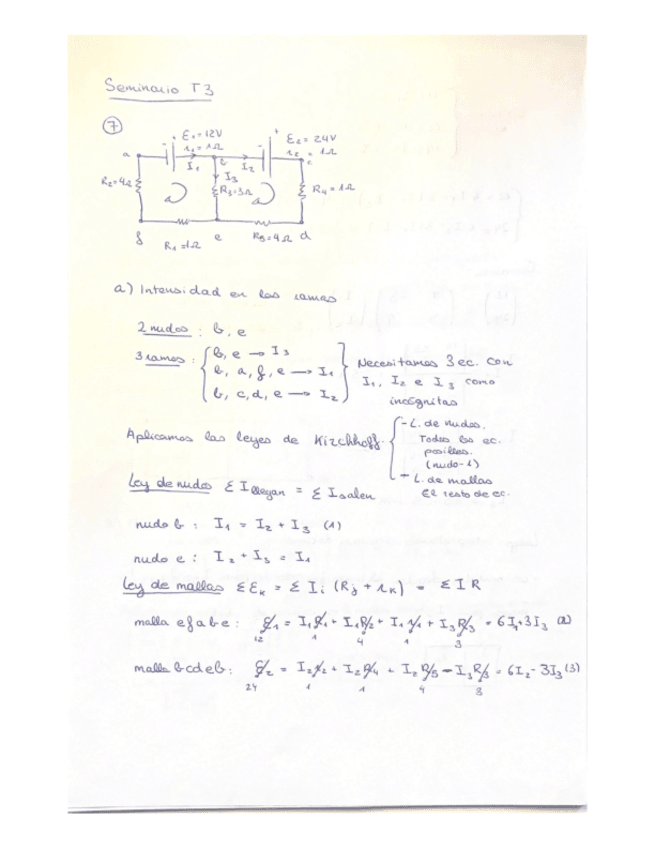 Seminario T3
7
+ ε₁ = 12V
r₁ = 1Ω
+ ε₂ = 24V
r₂ = 1Ω
a
b
c
I₁
I₂
I₃
R₂=4Ω
R₃=3Ω
R₄=1Ω
f
e
d
R₁=1Ω
R₅=4Ω
a) Intensidad en las ramas
2 nudos : b, e
3 ramas : b, e → I₃
b, a, f, e → I₁
b, c, d, e → I₂
Necesitamos 3 ec. con
I₁, I₂ e I₃ como
incógnitas
Aplicamos las leyes de Kirchhoff.
- L. de nudos.
Todas las ec.
posibles.
(nudo-1)
- L. de mallas
El resto de ec.
Ley de nudos Σ I llegan = Σ I salen
nudo b : I₁ = I₂ + I₃ (1)
nudo e : I₂ + I₃ = I₁
Ley de mallas Σ εₖ = Σ Iᵢ (Rⱼ + rₖ) = Σ I R
malla efabe : ε₁ = I₁R₁ + I₁R₂ + I₁r₁ + I₃R₃ = 6I₁+3I₃ (2)
12 1 4 1 3
malla bcdeb : ε₂ = I₂r₂ + I₂R₄ + I₂R₅ - I₃R₃ = 6I₂ - 3I₃ (3)
24 1 1 4 3